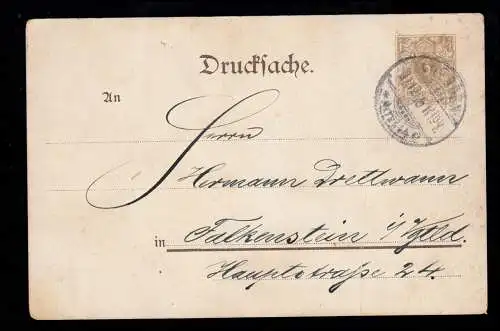 Drucksache.
An
Herrn
Hermann Drettwann
in Falkenstein i/Vgtld.
Hauptstraße 24.